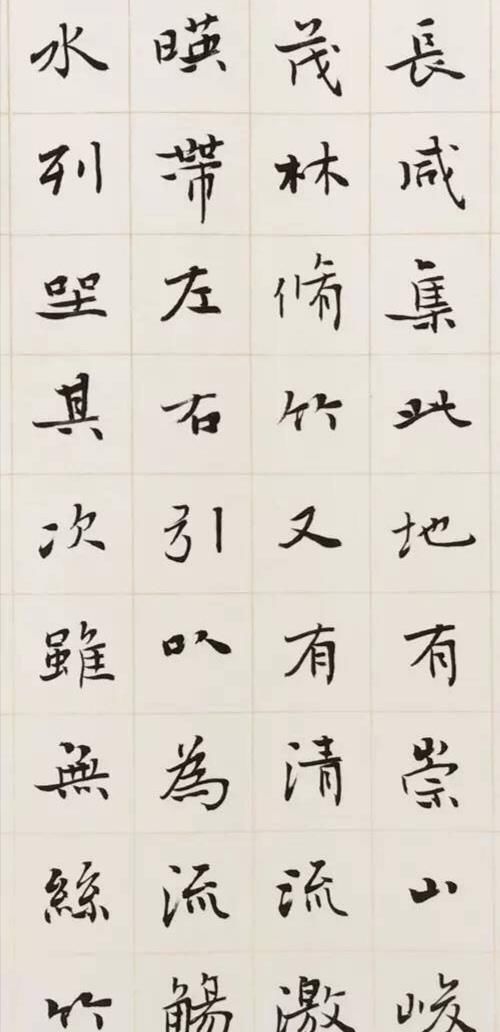 長咸集此地有崇山峻
茂林脩竹又有清流激
暎帶左右引以為流觴
水列坐其次雖無絲竹